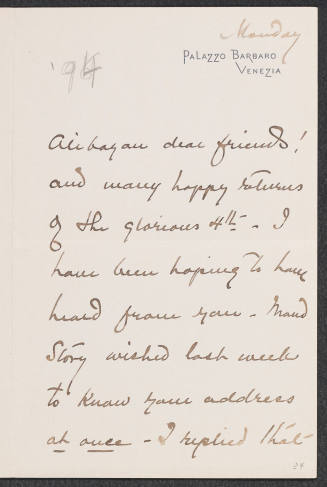 Monday
PALAZZO BARBARO
VENEZIA
'94
Alibazan dear friends!
and many happy returns
of the glorious 4th - I
have been hoping to have
heard from you - Maud
Story wished last week
to know your address
at once - I replied that